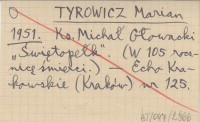 TYROWICZ Marian
1951. Ks. Michał Głowacki
„Świętopełk”. (W 105 rocz-
nicę śmierci.) Echo Kra-
kowskie (Kraków) nr 125.